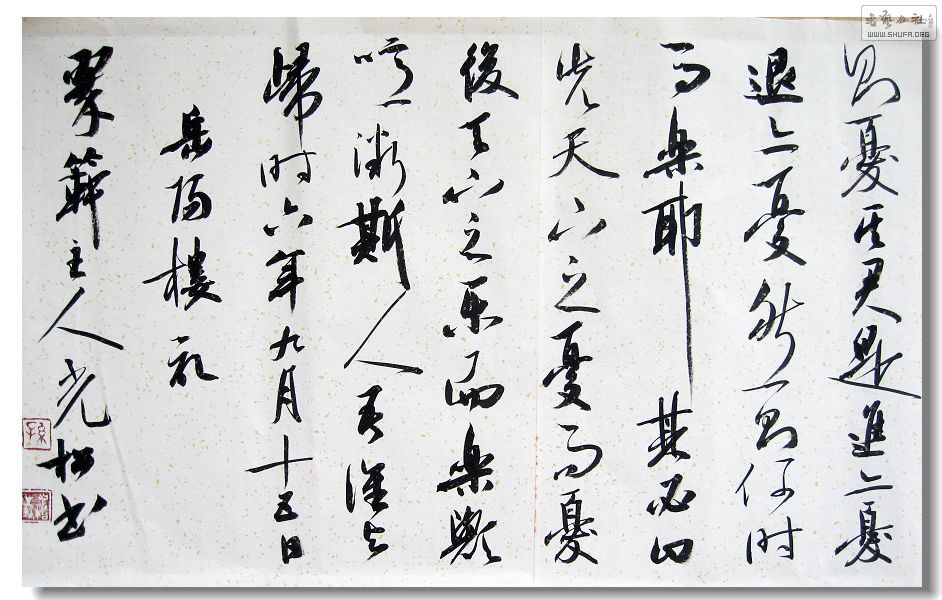 则憂其君是進亦憂
退亦憂然则何时
而樂耶其必曰
先天下之憂而憂
後天下之乐而樂歟
噫微斯人吾誰与
歸时六年九月十五日
岳阳樓记
範主人光松书
书艺公社
WWW.SHUFA.ORG
孫